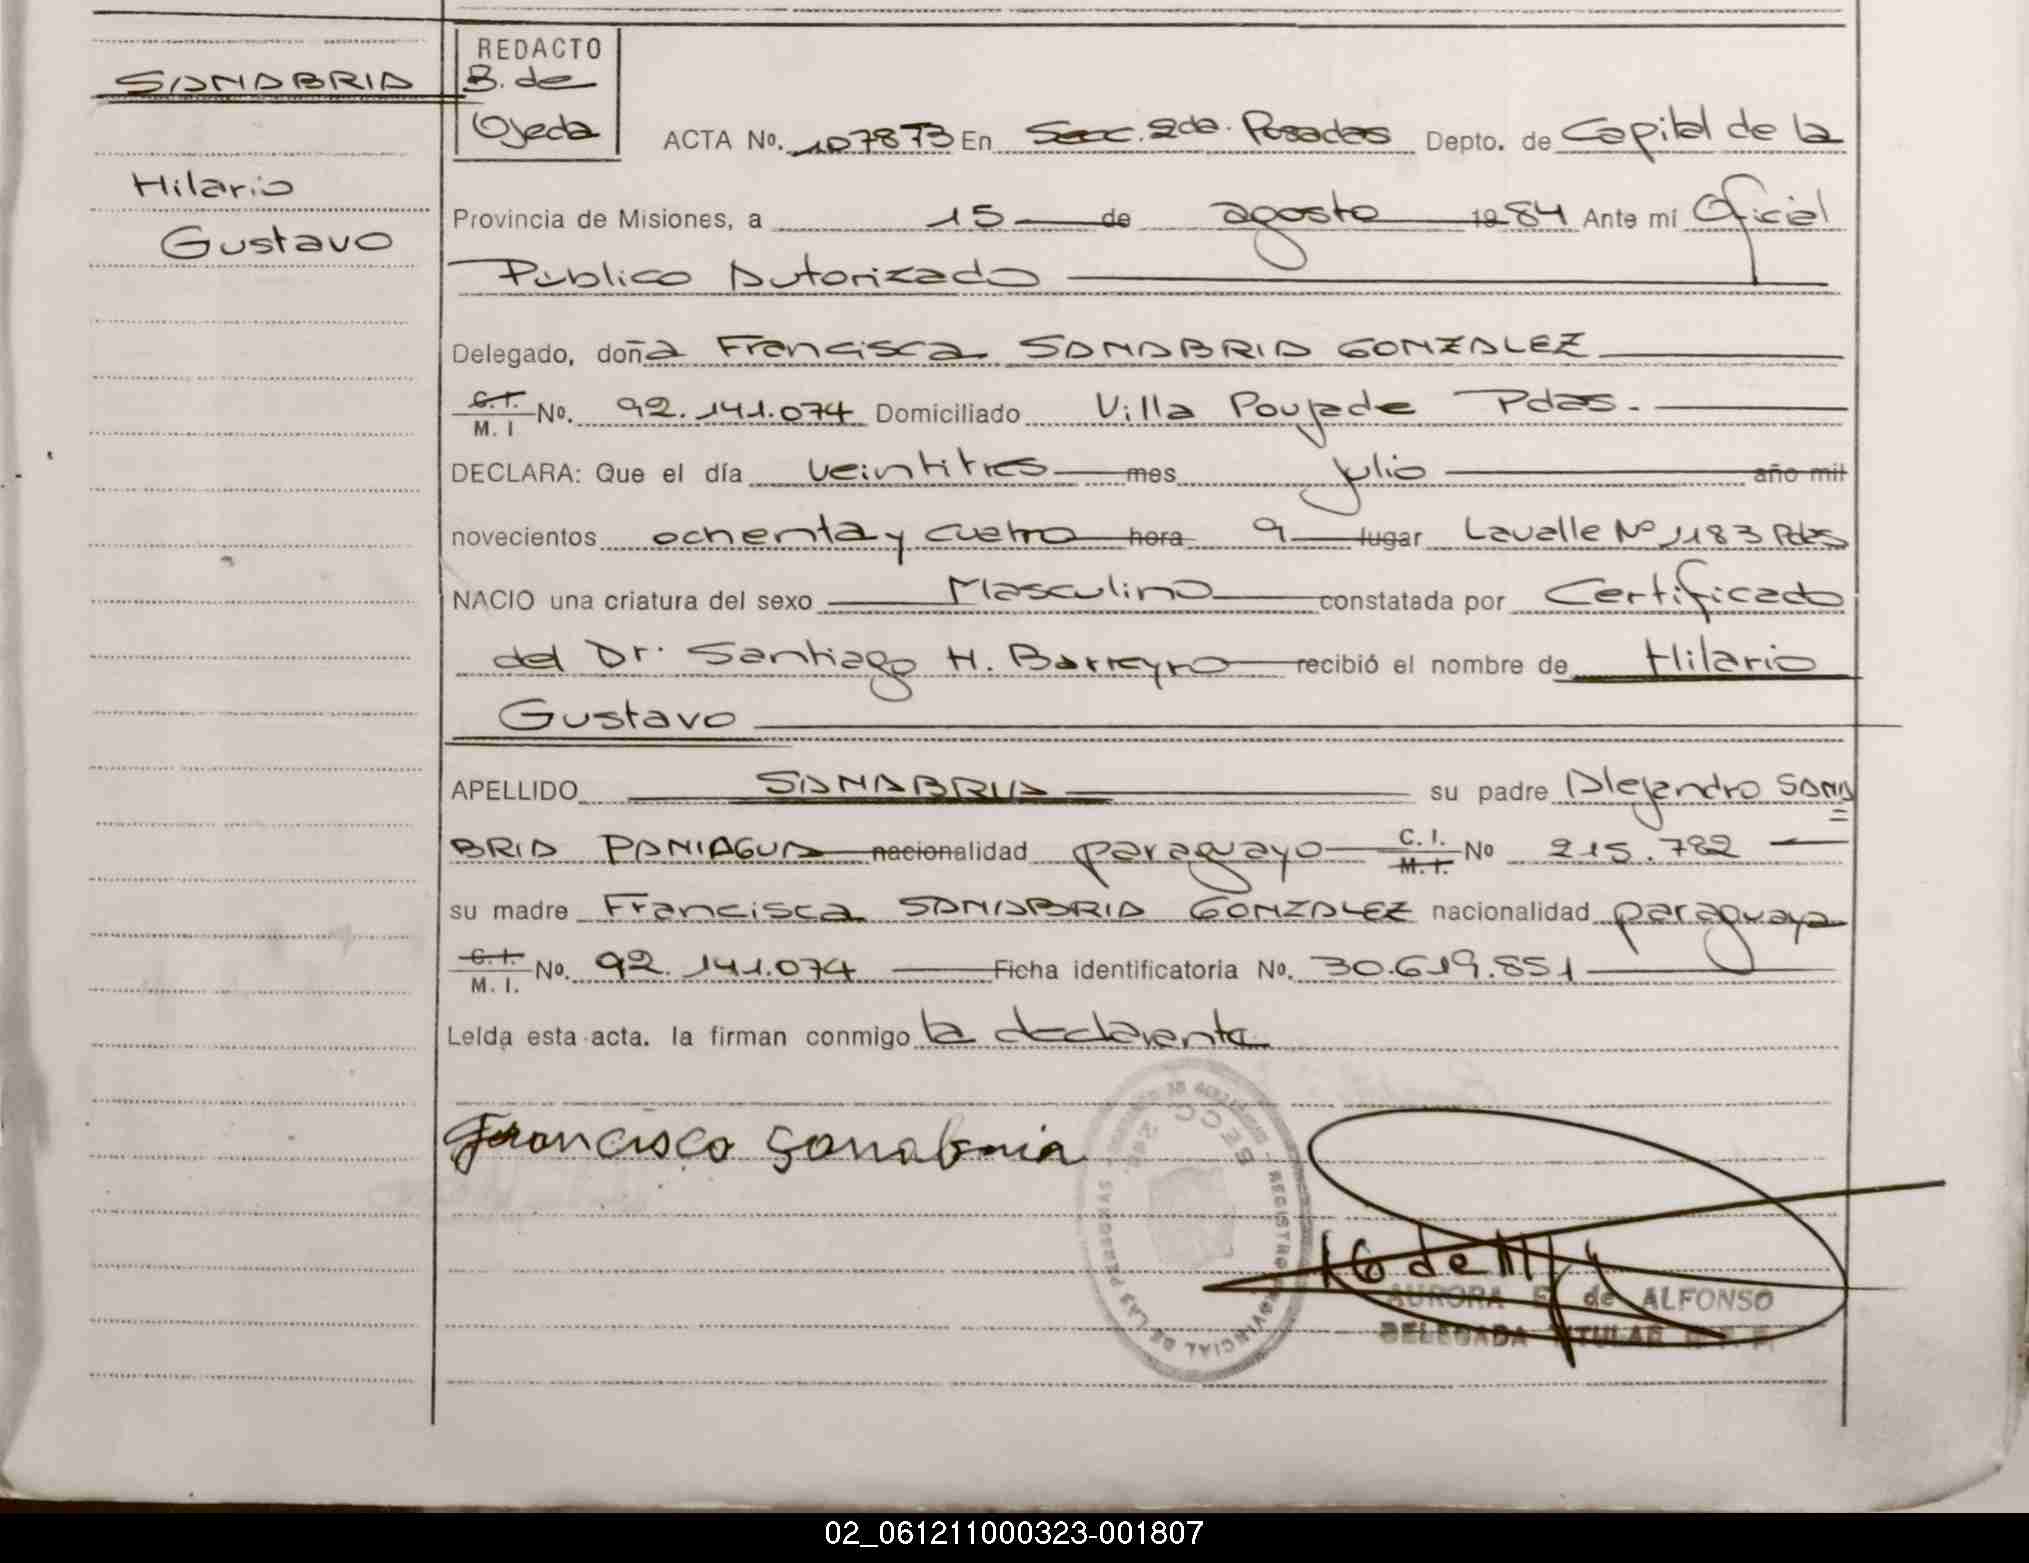 SANABRIA
Hilario
Gustavo
REDACTO
B. de
Ojeda
ACTA No. 107873 En Secc. 2da. Posadas Depto. de Capital de la
Provincia de Misiones, a 15 de agosto 1984 Ante mí Oficial
Público Autorizado
Delegado, doña Francisca SANABRIA GONZALEZ
C.I. M. I No. 92.141.074 Domiciliado Villa Poujade Pdas.
DECLARA: Que el día veintitres mes julio año mil
novecientos ochenta y cuatro hora 9 lugar Lavalle Nº 1183 Pdas
NACIO una criatura del sexo Masculino constatada por Certificado
del Dr. Santiago H. Barreyro recibió el nombre de Hilario
Gustavo
APELLIDO SANABRIA su padre Alejandro SANA
BRIA PANIAGUA nacionalidad paraguayo C. I. M. I. No 215.782
su madre Francisca SANABRIA GONZALEZ nacionalidad paraguaya
C.I. M. I. No. 92.141.074 Ficha identificatoria No. 30.619.851
Leída esta acta. la firman conmigo la declaranta
Francisca Sanabria
REGISTRO PROVINCIAL DE LAS PERSONAS
AURORA de ALFONSO
DELEGADA TITULAR
02_061211000323-001807